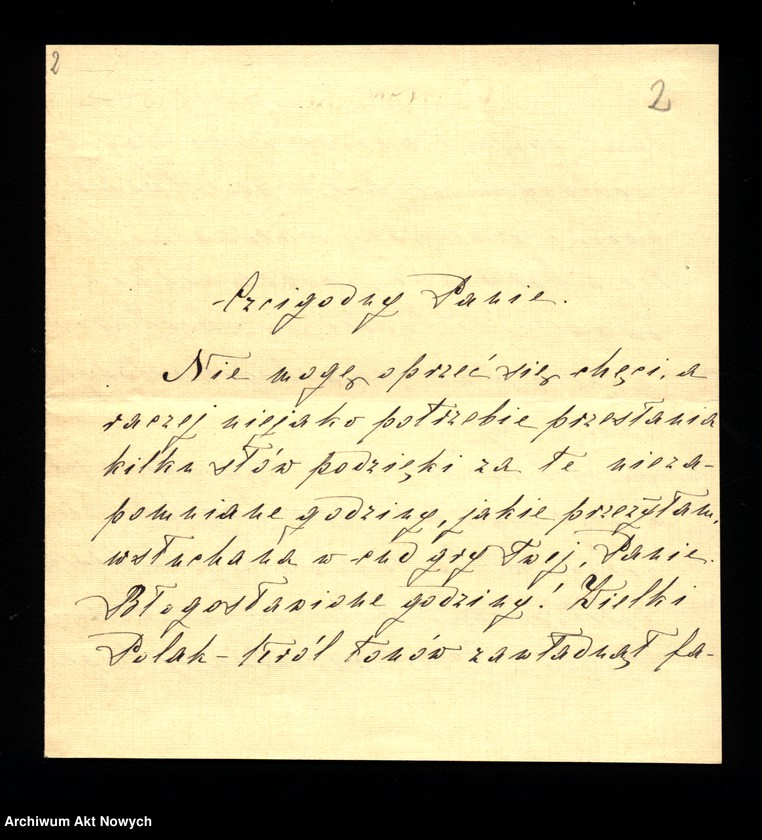 2
2
Czcigodny Panie.
Nie mogę oprzeć się chęci, a
raczej niejako potrzebie przesłania
kilku słów podzięki za te nieza-
pomniane godziny, jakie przeżyłam,
wsłuchana w cud gry Twej, Panie.
Błogosławione godziny! Wielki
Polak – Król tonów zawładnął fa-
Archiwum Akt Nowych